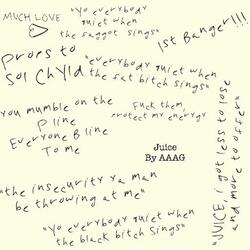 MUCH LOVE
"Yo everybody
quiet when
the faggot sings"
1st Banger!!!
props to
Sol Chyld
"everybody quiet when
the fat bitch sings"
you mumble on the
P line
Everyone B line
To me
Fuck them,
protect my energy
Juice
By AAAG
"JUICE, i got less to lose
and more to offer"
"the insecurity ya man
be throwing at me"
"Yo everybody
quiet when
the black bitch sings"